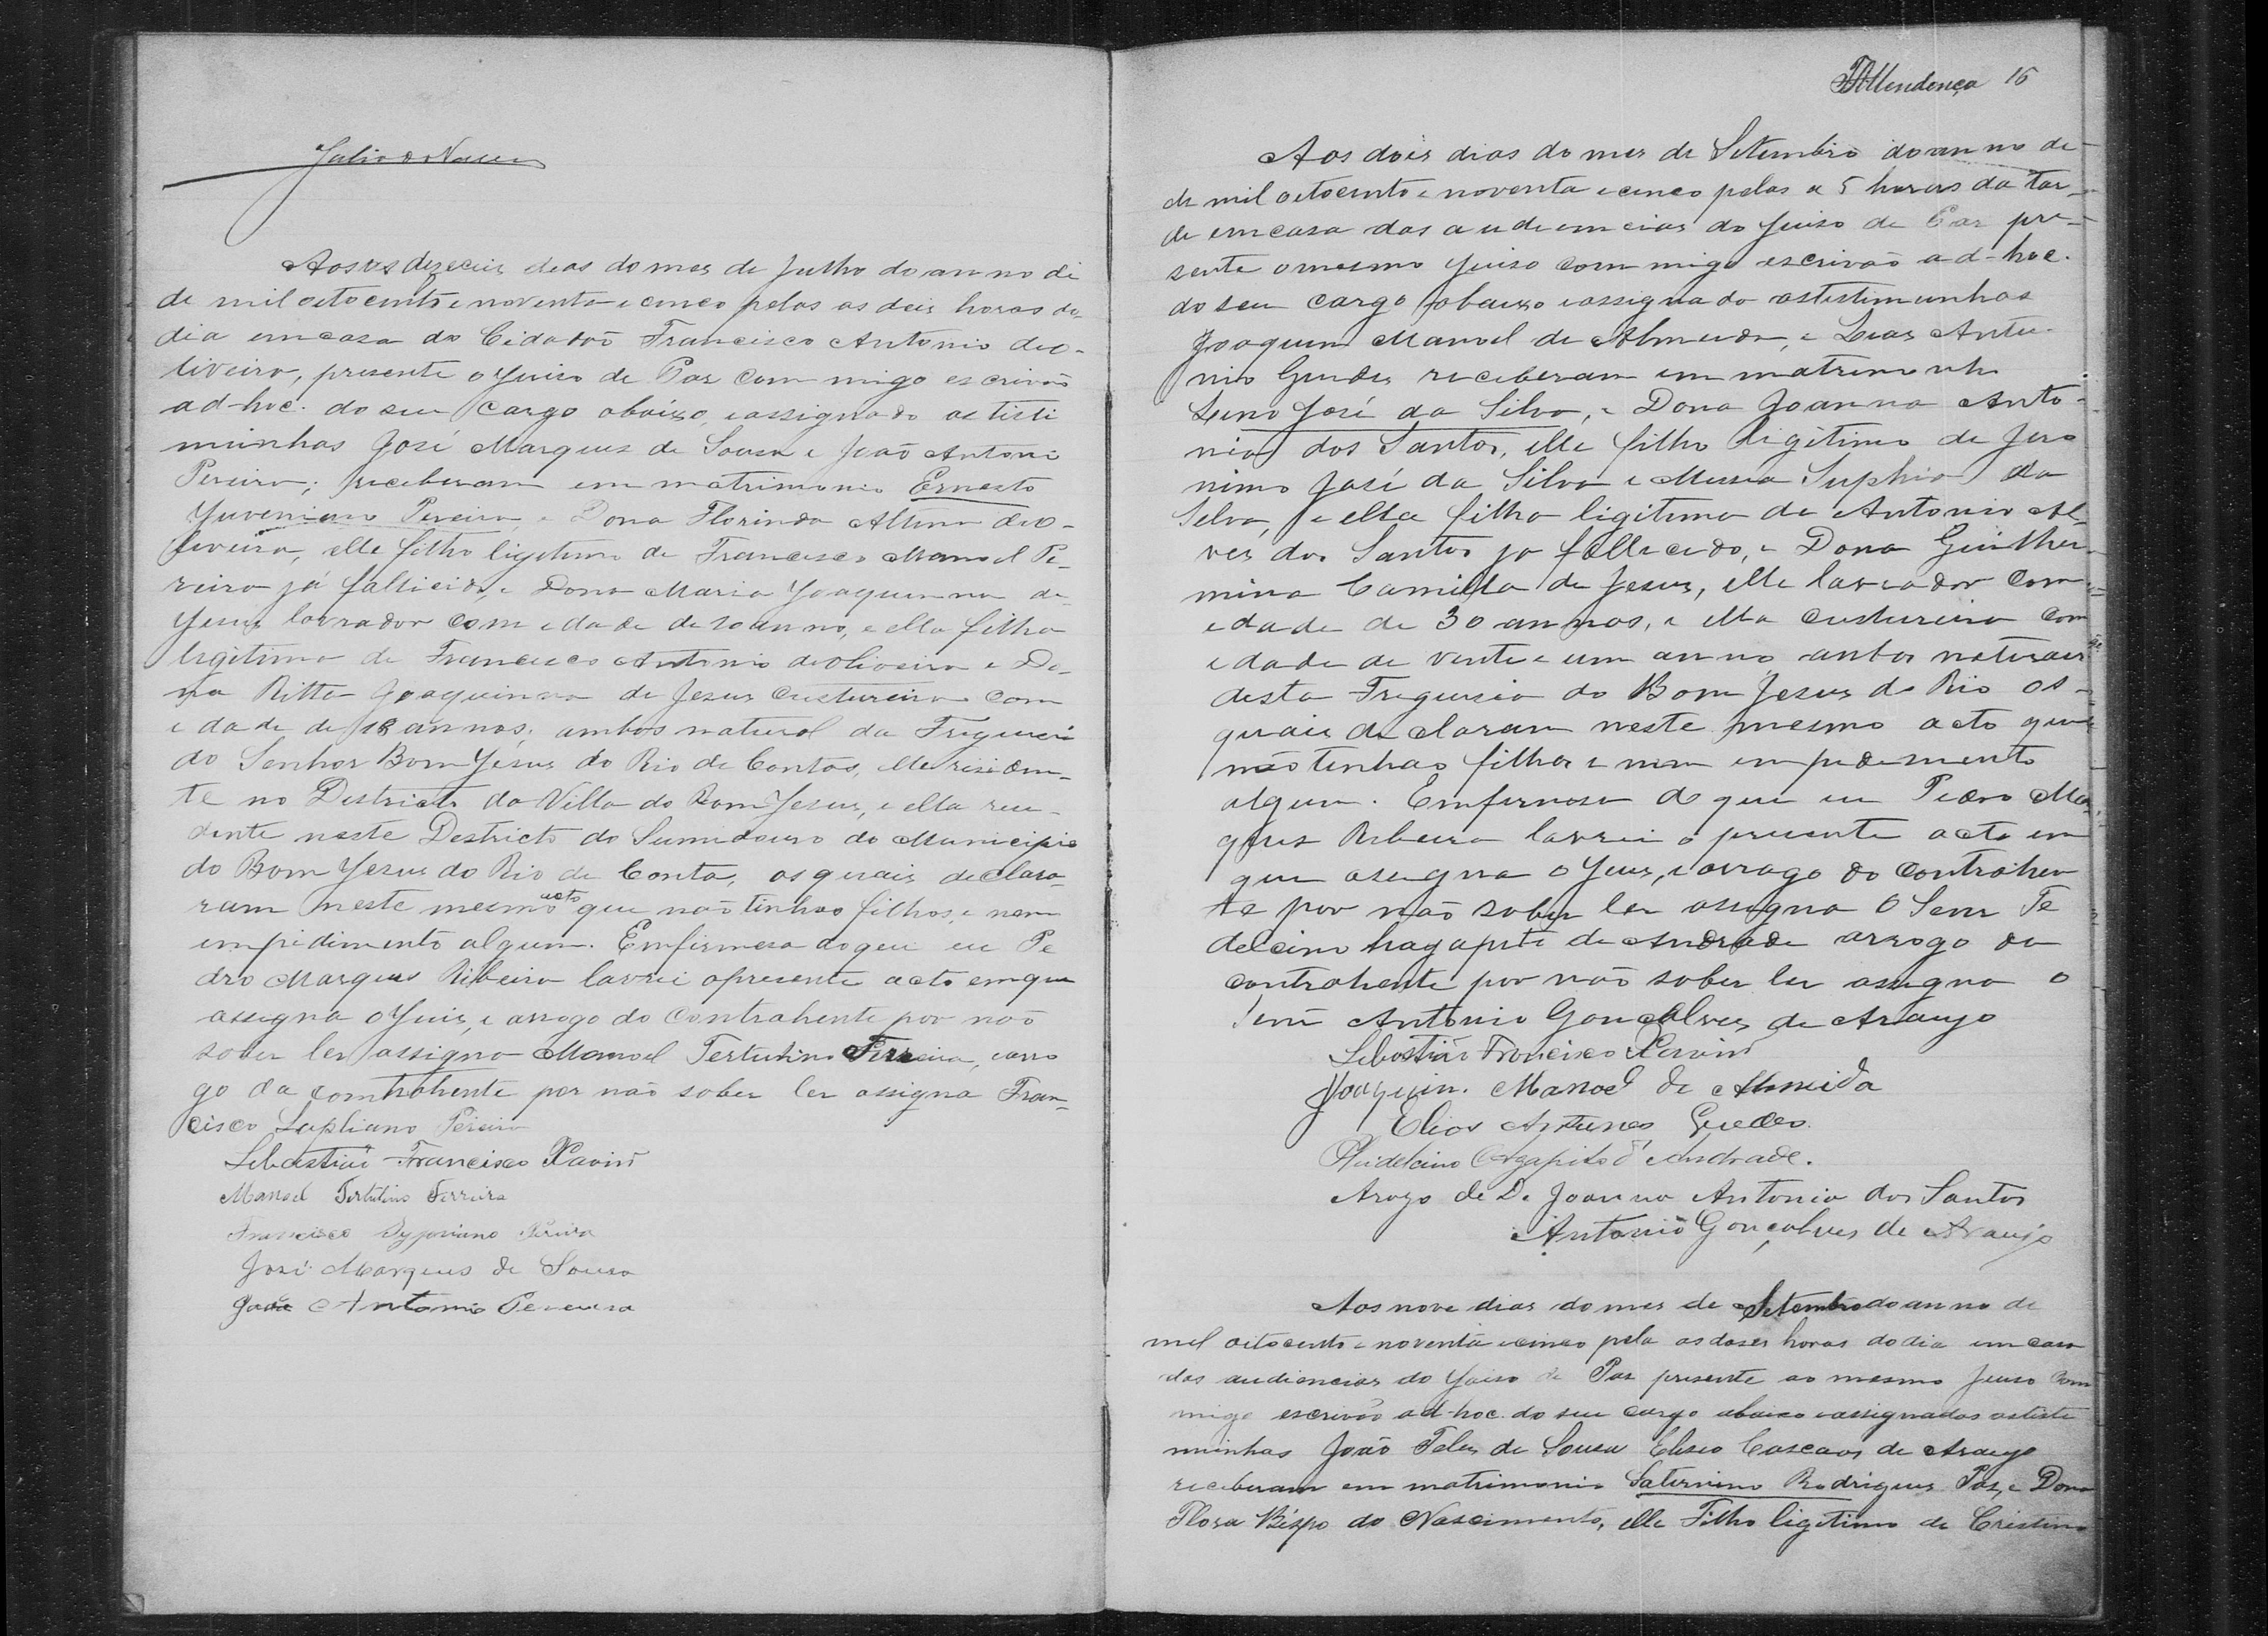 Aos dezeceis deas do mes de Julho do anno di
de mil oitocento e noventa e cinco pelas as deis horas do
dia em casa do Cidadão Francisco Antonio deo-
liveira, presente o Juiso de Paz com migo escrivão
ad-hoc. do seu cargo abaixo, eassignado as tisti
muinhas José Marques de Sousa e João Antoni
Pereira; receberam em matrimonio Ernesto
Yuveniano Pereira e Dona Florinda Altina deo-
liveira, elle filho ligitimo de Francisco Manoel Pe-
reira já fallicido, e Dona Maria Joaquinna de
Jesus lavrador com edade de 20 anno, e ella filha
ligitima de Francisco Antonio deOliveira e Do-
na Ritta Joaquinna de Jesus Custureira com
edade de 18 annos; ambos natural da Freguecia
do Senhor Bom Jesus do Rio de Contas, elle risiden-
te no Destricto da Villa do Bom Jesus, e ella resi-
dente neste Destricto do Sumidouro do Municipio
do Bom Jesus do Rio de Conta, os quais declara-
ram neste mesmo acto que não tinhão filhos, e nem
empidimento algum. Emfirmesa do que eu Pe
dro Marques Ribeiro lavrei opresente acto emque
assigna o Juis, e arrogo do Contrahente por não
saber ler assigna Manoel Tertulino Ferreira, earro
go da comtrahente por não saber ler assigna Fran-
cisco Sipliano Pereira
Sebastião Francisco Xavier
Manoel Tertulino Ferreira
Francisco Sypriano Pereira
José Marques de Sousa
João Antonio Pereira
Mendonça 15
Aos dois dias do mes de Setembro do anno de
de mil oitocento e noventa e cinco pelas a 5 horas da tar-
de em casa das audiemcias do Juiso de Paz pre-
sente omesmo Juiso com migo escrivão ad-hoc.
do seu cargo abaixo eassignado astistimunhas
Joaquim Manoel de Almeida, e Leas Anto
nio Guedes receberam em matrimonho
Leno José da Silva, e Dona Joanna Anto-
nia dos Santos, elle filho ligitimo de Jero
nimo José da Silva e Maria Suphia da
Silva, e ella filha ligitima de Antonio Al-
ves dos Santos ja fallecido, e Dona Guilher-
mina Camilla de Jesus, elle lavrador com
edade de 30 annos, e ella custureira com
edade de vinte e um anno ambos naturaes
desta Freguesia do Bom Jesus do Rio os-
quais declaram neste mesmo acto que
não tinhão filhos e nem empedemento
algum. Emfirmesa do que eu Pedro Mar
ques Ribeiro lavrei o presente acto em
que asegna o Juis, e arrago do contrahen
te por não saber ler assigna o Senr Fe
delcino hagapito de Andrade arrogo da
contrahente por não saber ler assigna o
Senr Antonio Gonçalves de Araujo
Sebastião Francisco Xavier
Joaquim. Manoel de Almeida
Elias Antunes Guedes
Fidelcino Agapito d'Andrade.
Arogo de D. Joanna Antonia dos Santos
Antonio Gonçalves de Araujo
Aos nove dias do mes de Setembro do anno de
mil oitocento e noventa e cinco pela as doses horas do dia em casa
das audiencias do Juiso de Paz presente ao mesmo Juiso Com
migo escrivão ad-hoc. do seu cargo abaixo eassignados astiste
muinhas João Teles de Sousa Eliseo Cascaes de Araujo
receberam em matrimonio Saturnino Rodrigues Pas, e Dona
Flora Bispo do Nascimento, elle Filho ligitimo de Cristino